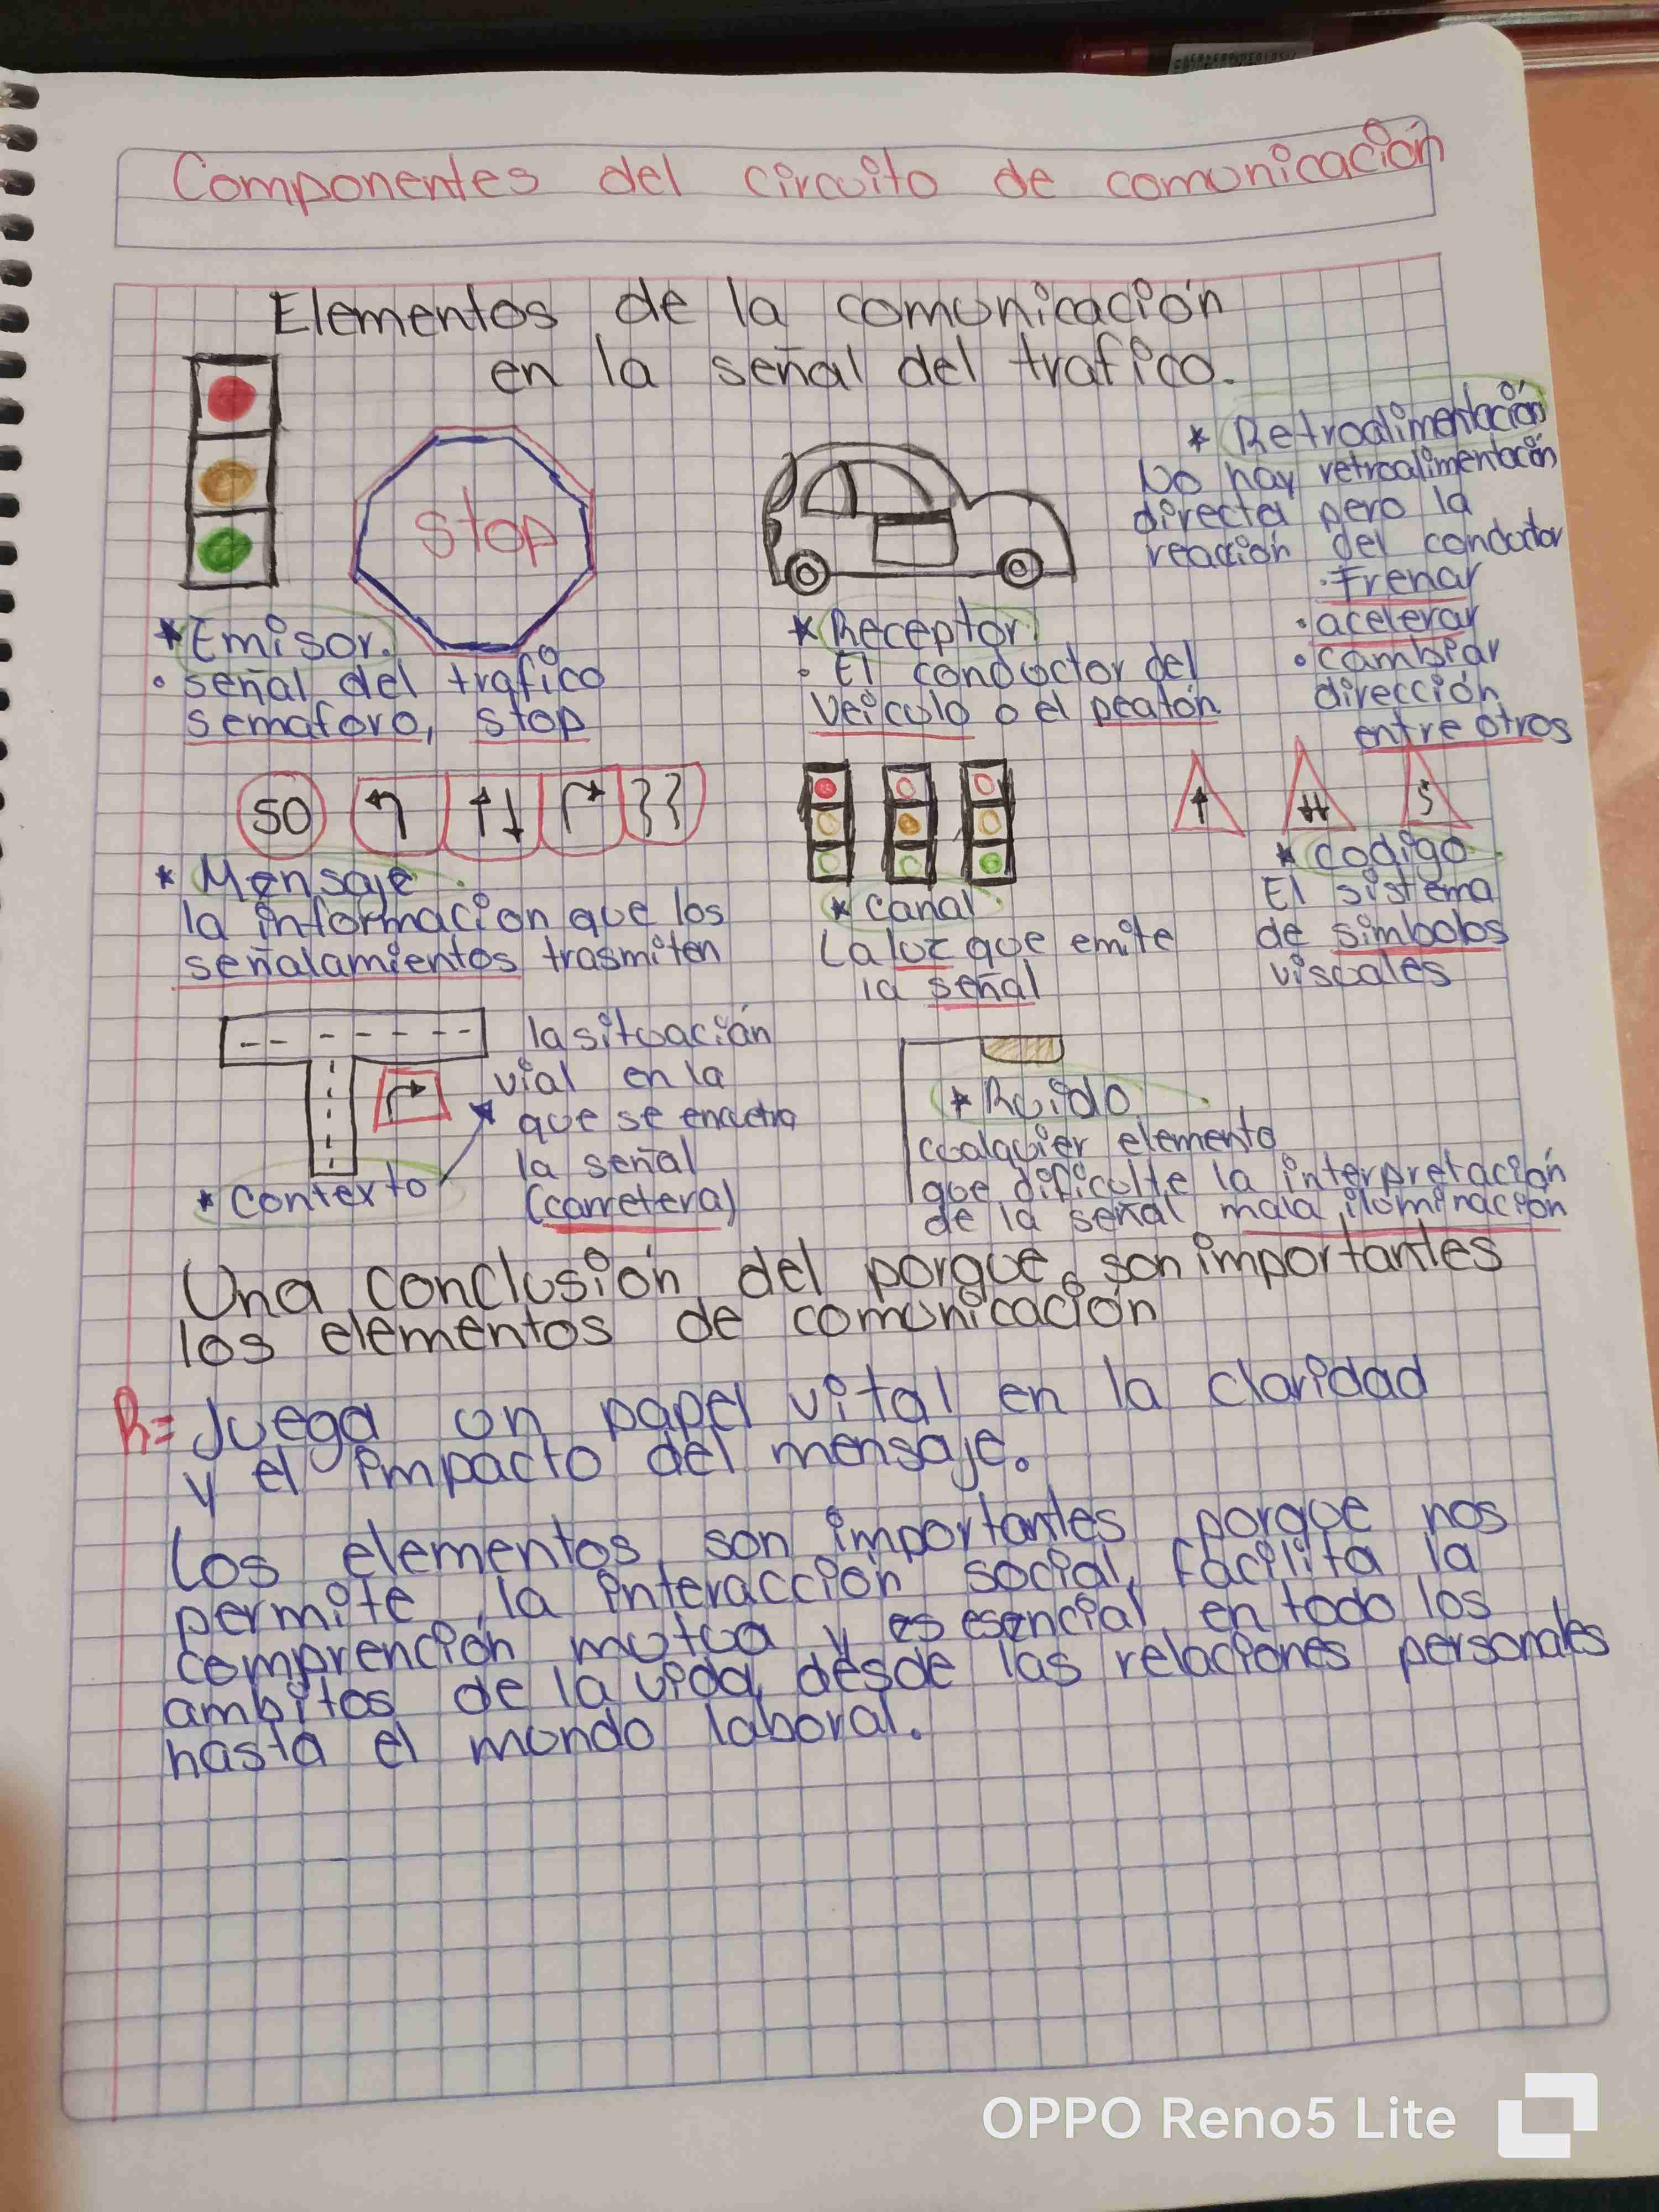 Componentes del circuito de comunicación
Elementos de la comunicación
en la señal del trafico.
stop
* Emisor.
• señal del trafico
semaforo, stop
* Receptor
• El conductor del
veiculo o el peatón
* Retroalimentación
No hay retroalimentación
directa pero la
reacción del conductor
• frenar
• acelerar
• cambiar
dirección
entre otros
50
* Mensaje
la información que los
señalamientos trasmiten
* canal
La luz que emite
la señal
* codigo
El sistema
de simbolos
visuales
* contexto
la situación
vial en la
que se encuetra
la señal
(carretera)
* Ruido
cualquier elemento
que dificulte la interpretación
de la señal mala iluminación
Una conclusión del porque son importantes
los elementos de comunicación
R= Juega un papel vital en la claridad
y el impacto del mensaje.
Los elementos son importantes porque nos
permite la interacción social, facilita la
comprención mutua y es esencial en todo los
ambitos de la vida desde las relaciones personales
hasta el mundo laboral.
OPPO Reno5 Lite